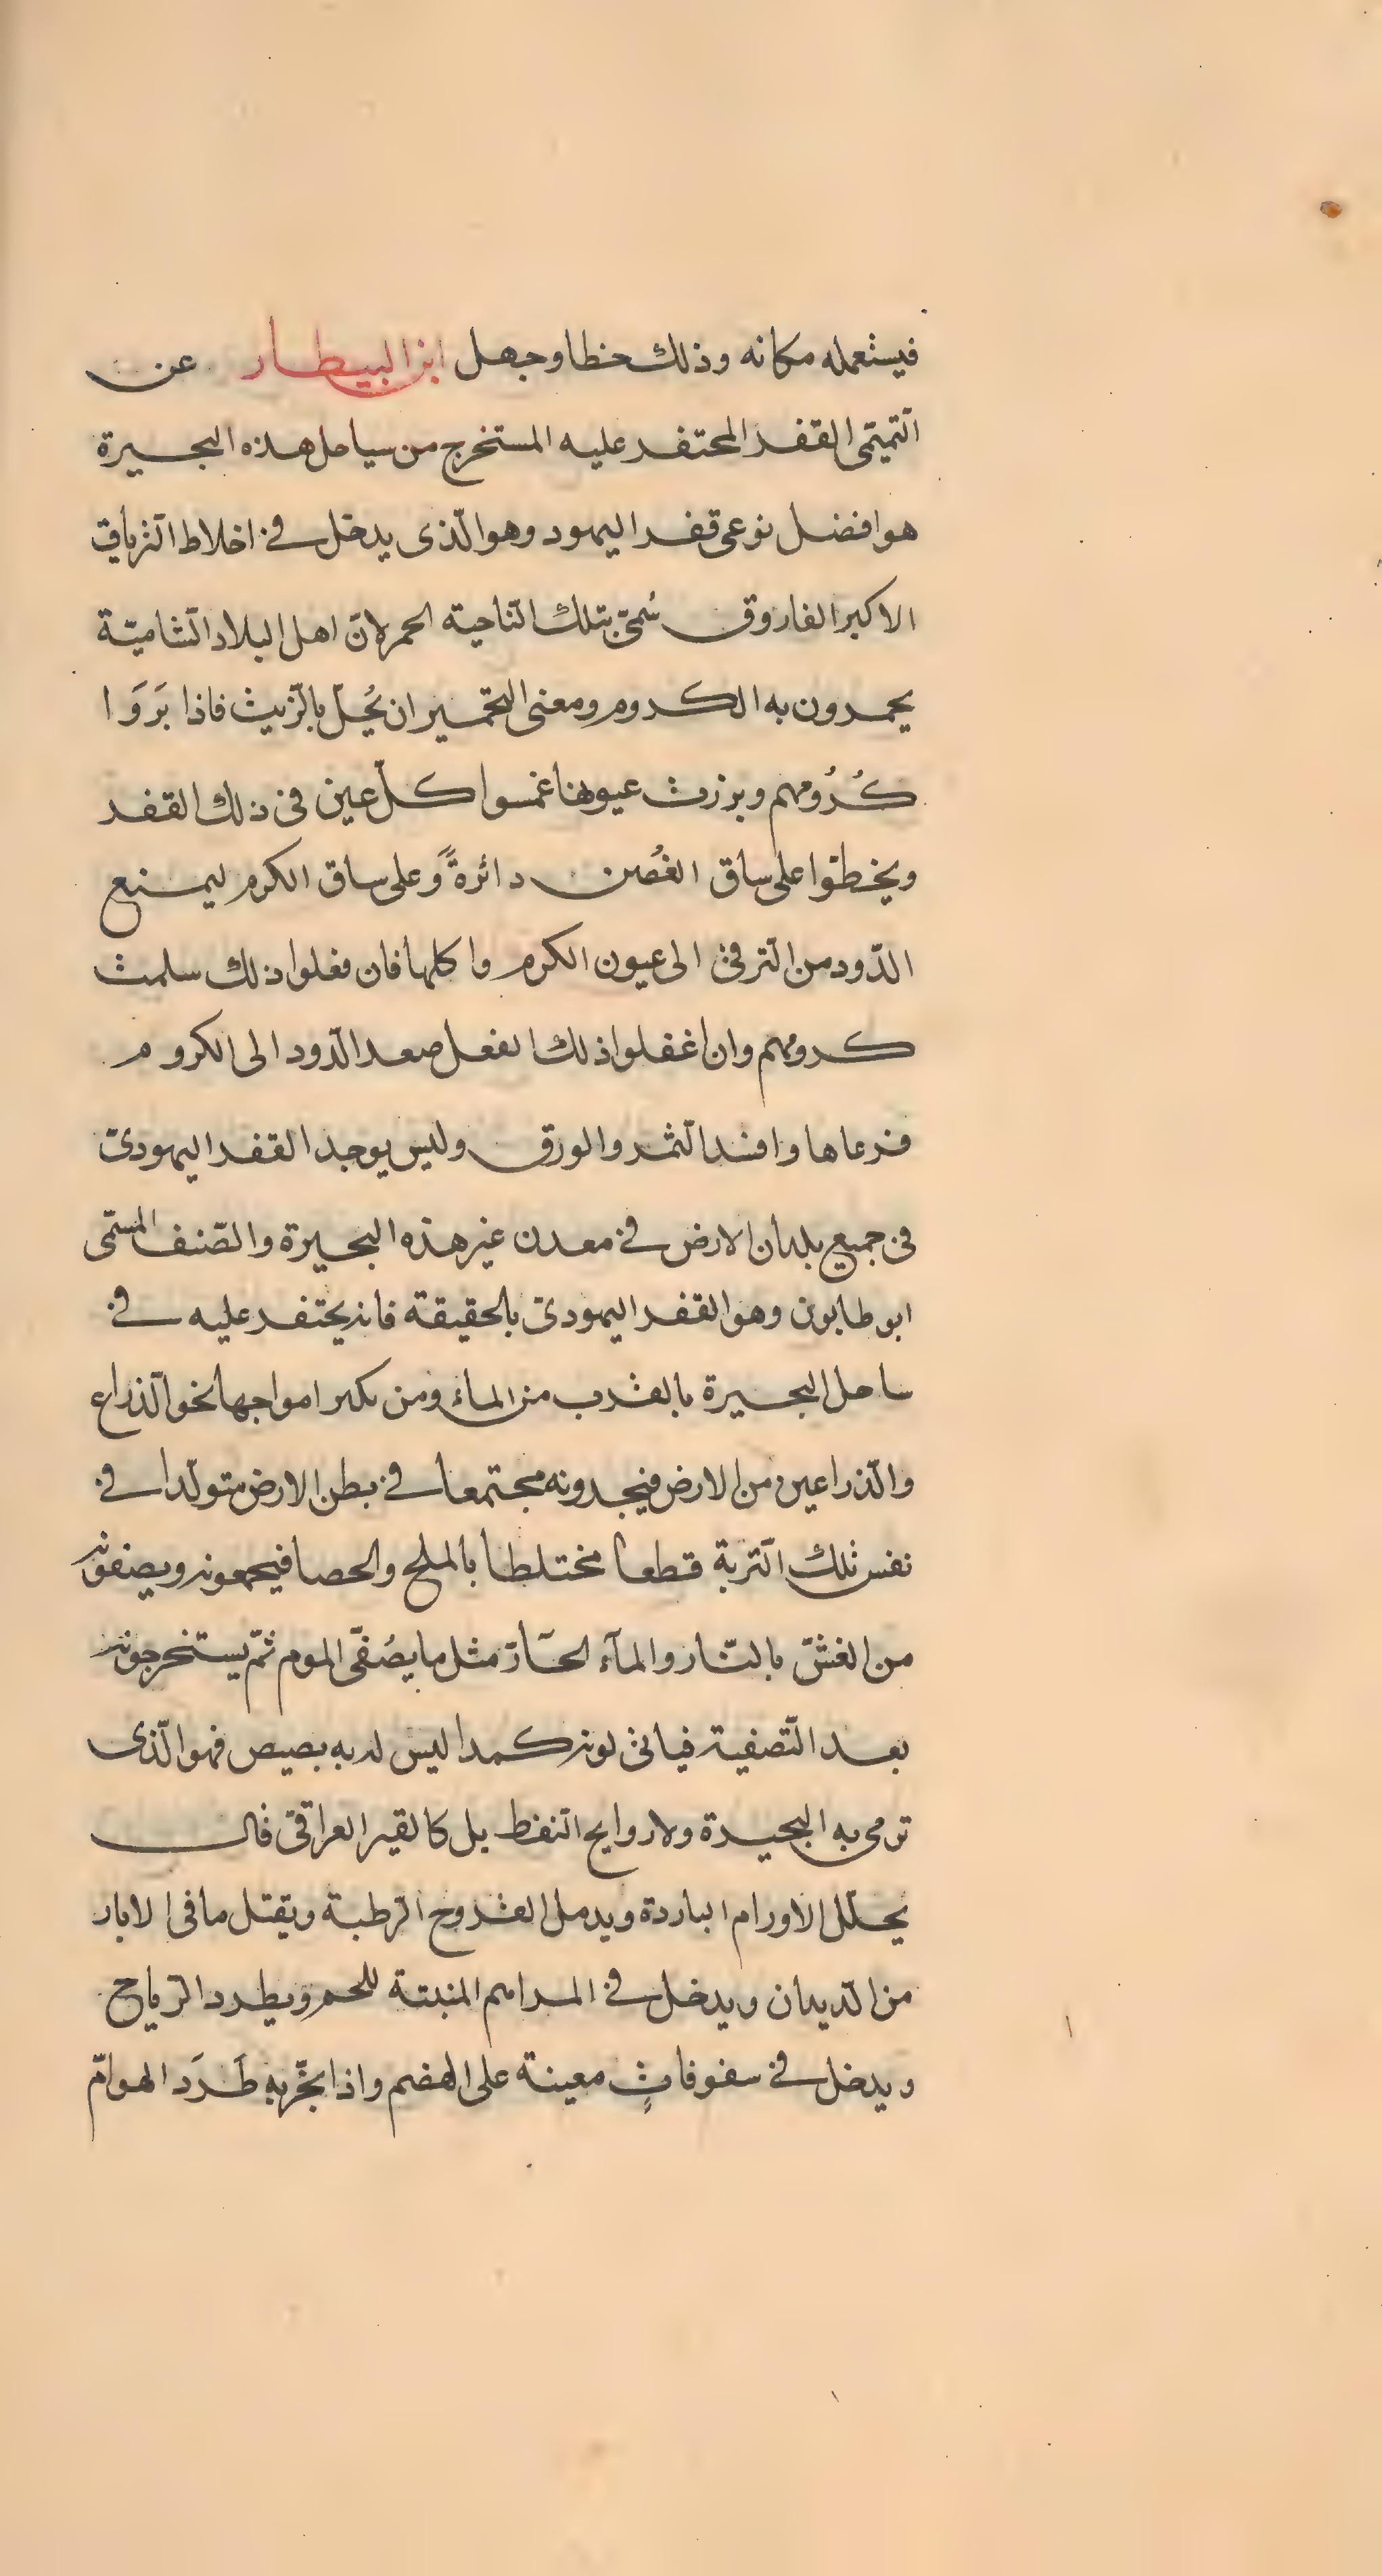 فيستعمله مكانه وذلك خطا وجهل ابن البيطار عن
التميمى القفد المحتفد عليه المستخرج من سياحل هذه البحيرة
هو افضل نوعى قفد اليهود وهو الّذى يدخل فى اخلاط التّرياق
الاكبر الفاروق سُمىّ بتلك النّاحية الحمر لانّ اهل البلاد الشّاميّة
يحمدون به الكدوم ومعنى التحمير ان يُحلّ بالزّيت فاذا بَرَوَا
كُدُومهم وبرزت عيونها غمسوا كلّ عين فى ذلك القفد
ويخطّوا على ساق الغُصن دائرةً وَعلى ساق الكرم ليمنع
الدّود من التّرقى الى عيون الكرم واكلها فان فعلوا ذلك سلمت
كدومهم وان اغفلوا ذلك الفعل صعد الدّود الى الكروم
فرعاها وافسد الثّمر والورق وليس يوجد القفد اليهودىّ
فى جميع بلدان الارض فى معدن غير هذه البحيرة والصّنف المسمّى
ابو طابون وهو القفد اليهودىّ بالحقيقة فانه يحتفد عليه فى
ساحل البحيرة بالقدب من الماء ومن تكسر امواجها نحو الذّراع
والذّراعين من الارض فيجدونه مجتمعا فى بطن الارض متولّدا فى
نفس تلك التّربة قطعا مختلطا بالملح والحصا فيجمعونه ويصفونه
من الغشّ بالنّار والمآء الحَآرّ مثل ما يصُفّى الموم ثمّ يستخرجونه
بعد التّصفية فياتى لونه كمدا ليس له به بصيص فهو الّذى
ترمى به البحيدة ولا روايح النّفط بل كالقير العراقىّ قال
يحلّل الاورام الباردة ويدمل القدوح الرّطبة ويقتل ما فى الابار
من الدّيدان ويدخل فى المراهم المنبتة للحم ويطرد الرّياح
ويدخل فى سفوفاتٍ معينة على الهضم واذا بخّر به طَرَدَ الهوامّ